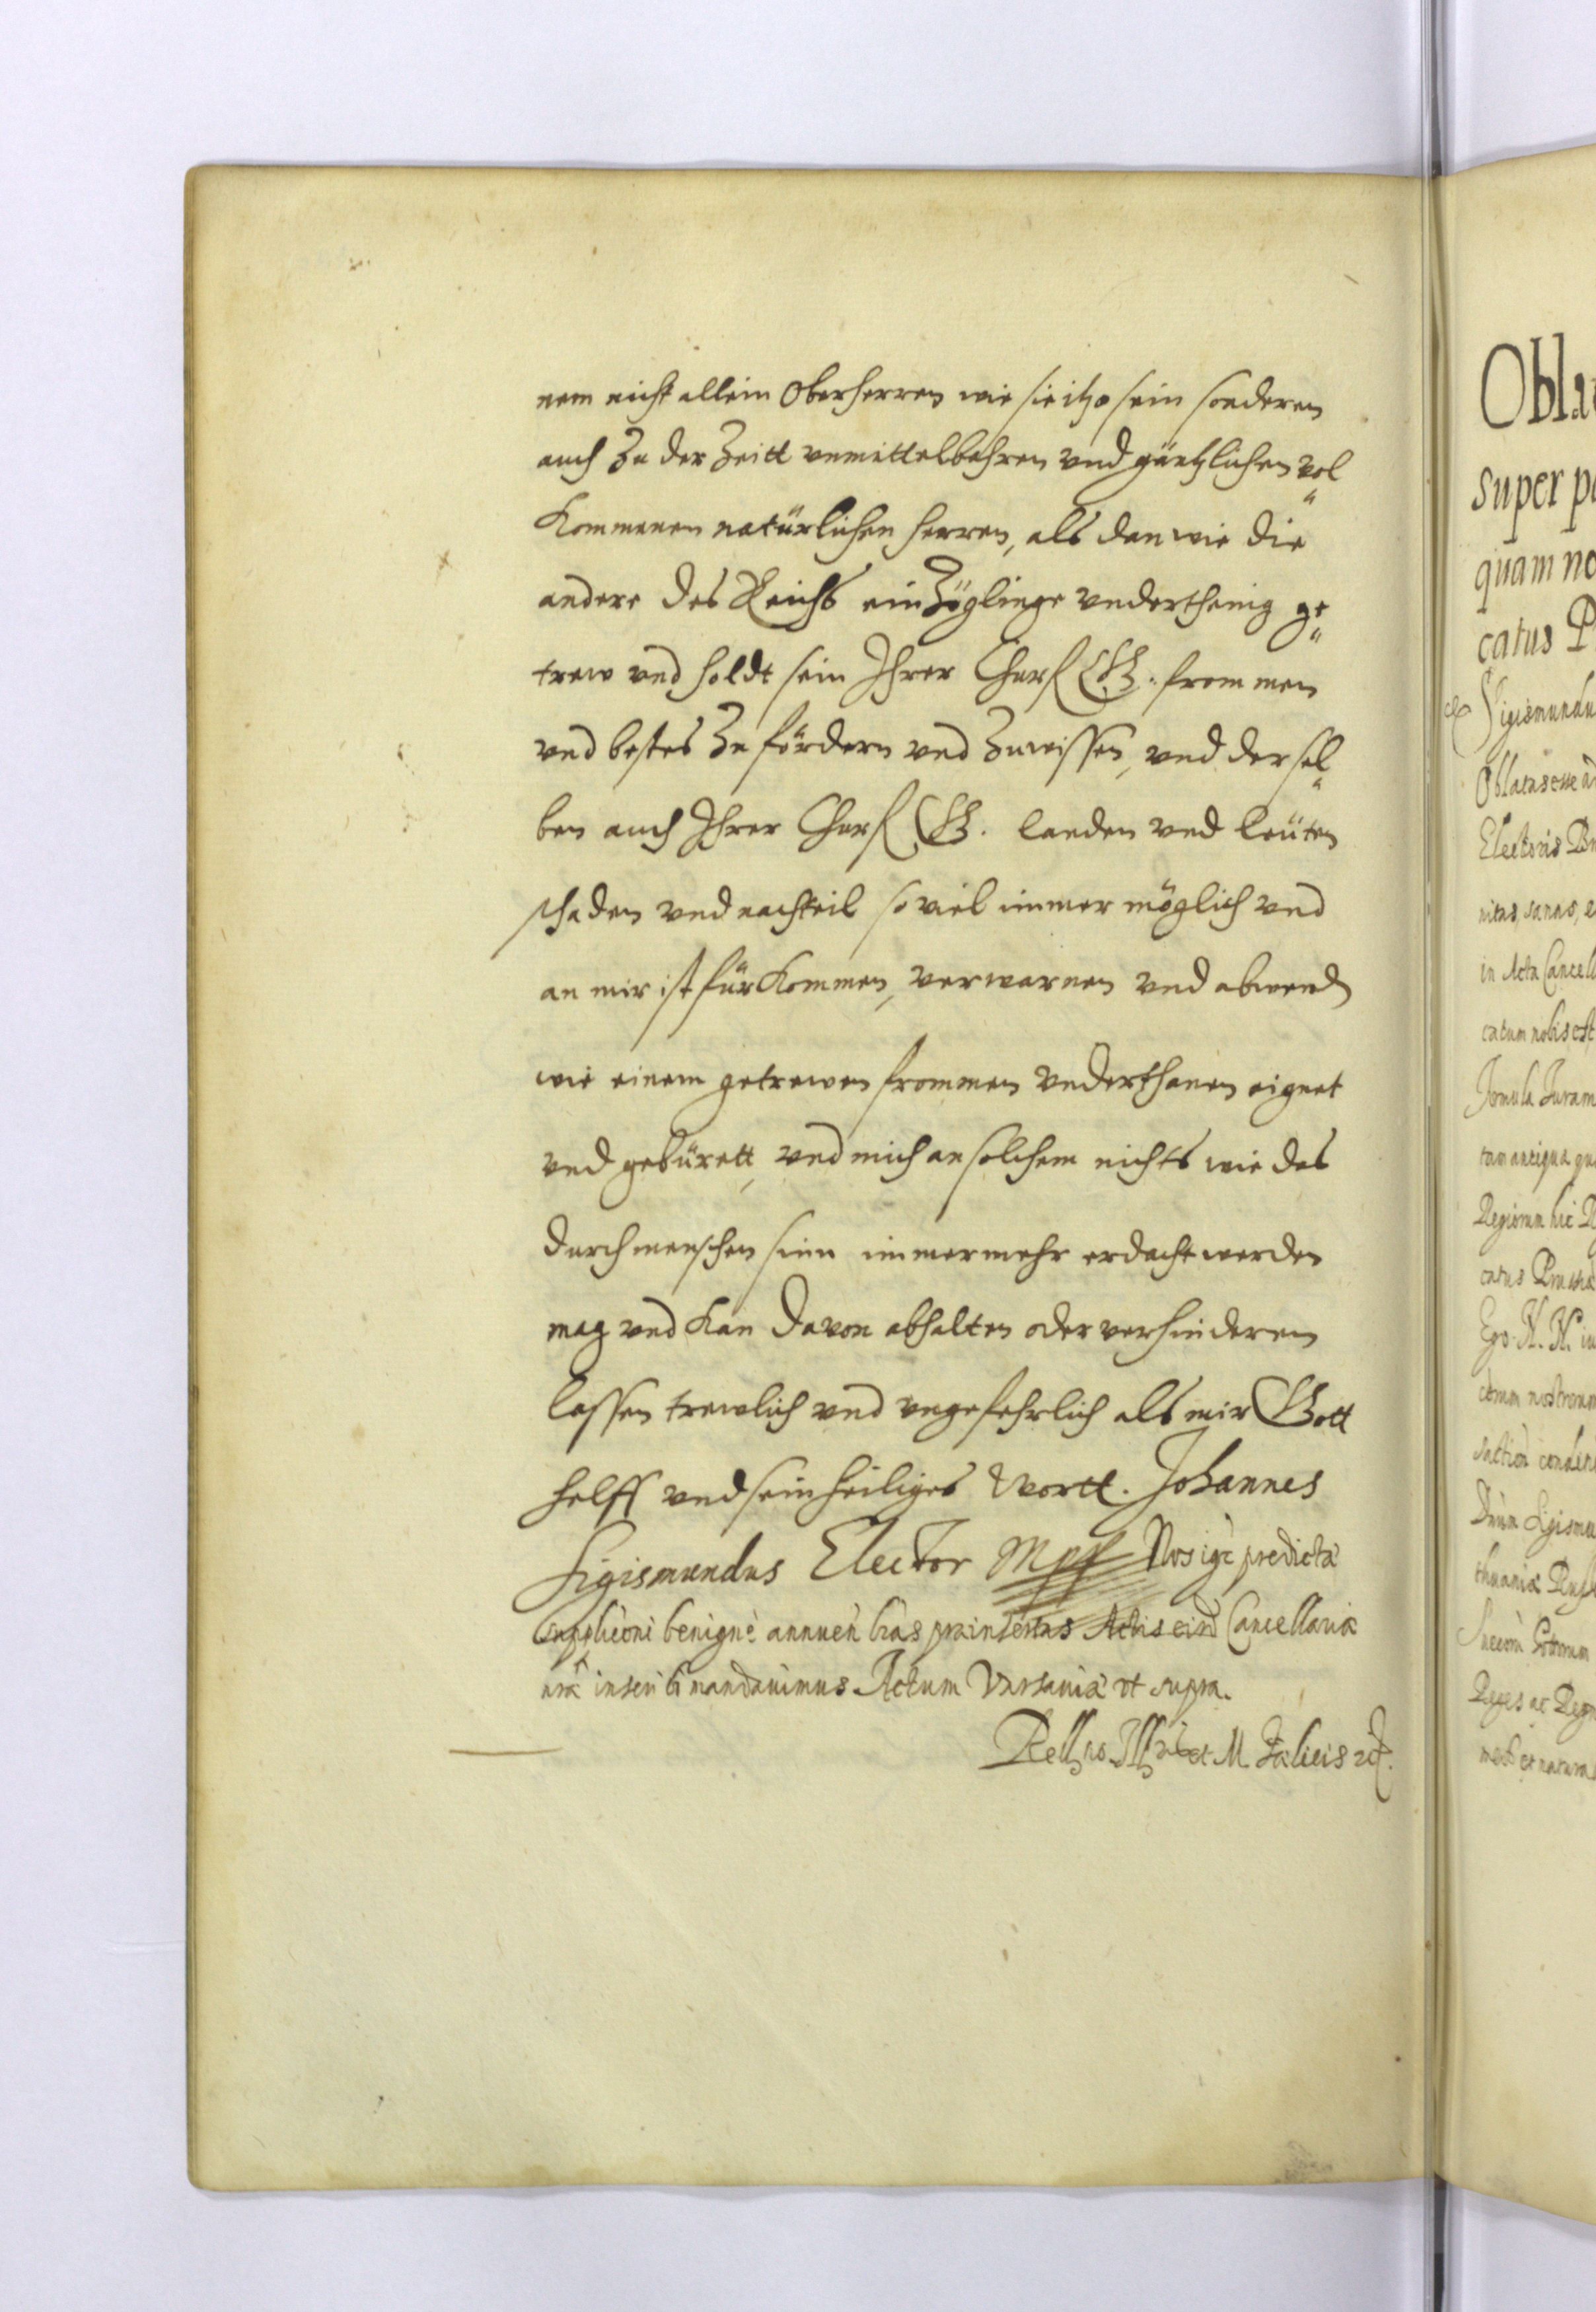 nem nicht allein Oberherren wie sie itzo sein sonderen
auch zu der Zeitt vnmittelbahren vnd gäntzlichen vol
Kommenen natürlichen herren, als dan wie die
andere des Reichs einzöglinge vnderthenig ge
trew vnd holdt sein Ihrer Churf G. frommen
vnd bestes zu fördern vnd zuwissen, vnd dersel
ben auch Ihrer Churf G. landen vnd leüten
schaden vnd nachteil so viel immer möglich vnd
an mir ist fürkommen, verwarnen vnd abwend
wie einem getrewen frommen vnderthanen eignet
vnd gebürett, vnd mich an solchem nichts wie das
durch menschen sinn immermehr erdacht werden
mag vnd kan davon abhalten oder verhinderen
lassen trewlich vnd vngefehrlich als mir Gott
helff vnd sein heiliges wortt. Johannes
Sigismundus Elector Mpp Nos igr predicta
supplicõni benignè annuen lras præinsertas Actis eisd Cancellariæ
nræ inseri mandauimus Actum Varsauiæ vt supra.
et M
Obla
super p
quam no
catus P
Sigismundu
Oblatas esse
Electoris
in Acta Cancell
catum nobis est
Juram
tam antiqua
catus Prussiæ
Ego N. N.
Sigismu
thuaniæ Russ
Reges ac Regn
et natura